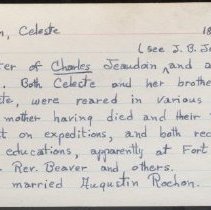 n, Celeste 18
(see J. B. Je
ter of Charles Jeaudoin and a
. Both Celeste and her brothe
te, were reared in various
mother having died and their
t on expeditions, and both rec
educations, apparently at Fort
Rev. Beaver and others.
married Augustin Rochon.